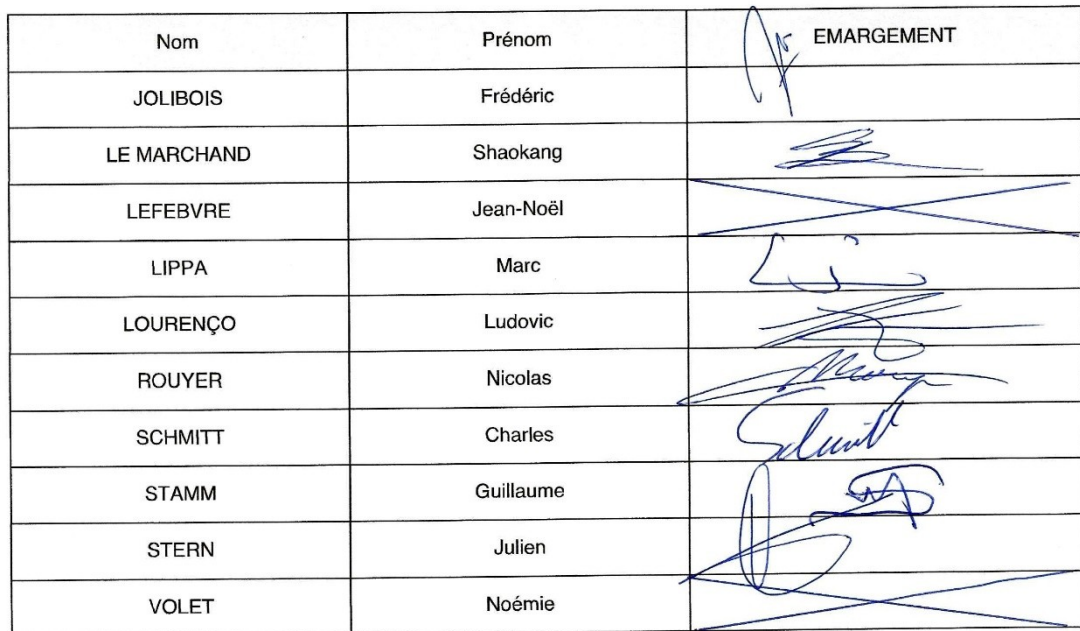 Nom Prénom EMARGEMENT
JOLIBOIS Frédéric
LE MARCHAND Shaokang
LEFEBVRE Jean-Noël
LIPPA Marc
LOURENÇO Ludovic
ROUYER Nicolas
SCHMITT Charles Schmitt
STAMM Guillaume
STERN Julien
VOLET Noémie